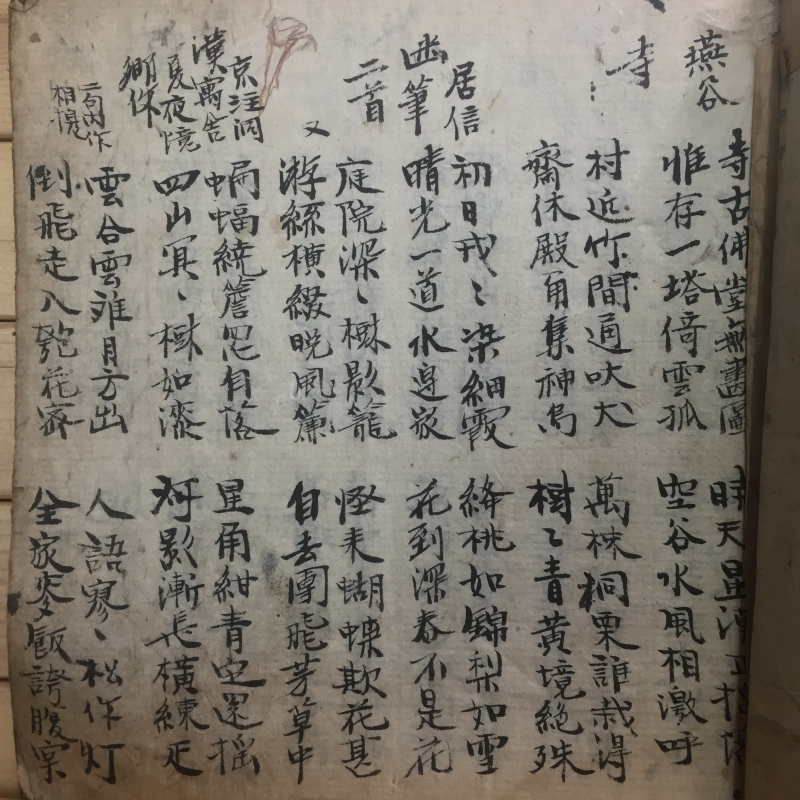 燕谷
寺
寺古佛堂無畫圖 時天星
惟存一塔倚雲孤 空谷水風相激呼
村近竹間通吠犬 萬株桐栗誰栽得
齋休殿角集神烏 樹〻青黃境絕殊
居信
幽筆
二首
初日戎〻染細霞 絳桃如錦梨如雪
晴光一道水邊家 花到深春不是花
又
庭院深〻樾影籠 怪来蝴蝶欺花甚
游絲橫綴晩風簾 自去團飛芳草中
京汪洞
漢寓舍
夏夜憶
鄉作
蝙蝠繞簷 有落 星角紺青定還搖
四山冥〻樾如漆 河影漸長橫練疋
二句內作
相換
雲合雲離月方出 人語寥〻松作灯
倒飛走入匏花密 全家麥飯誇腹